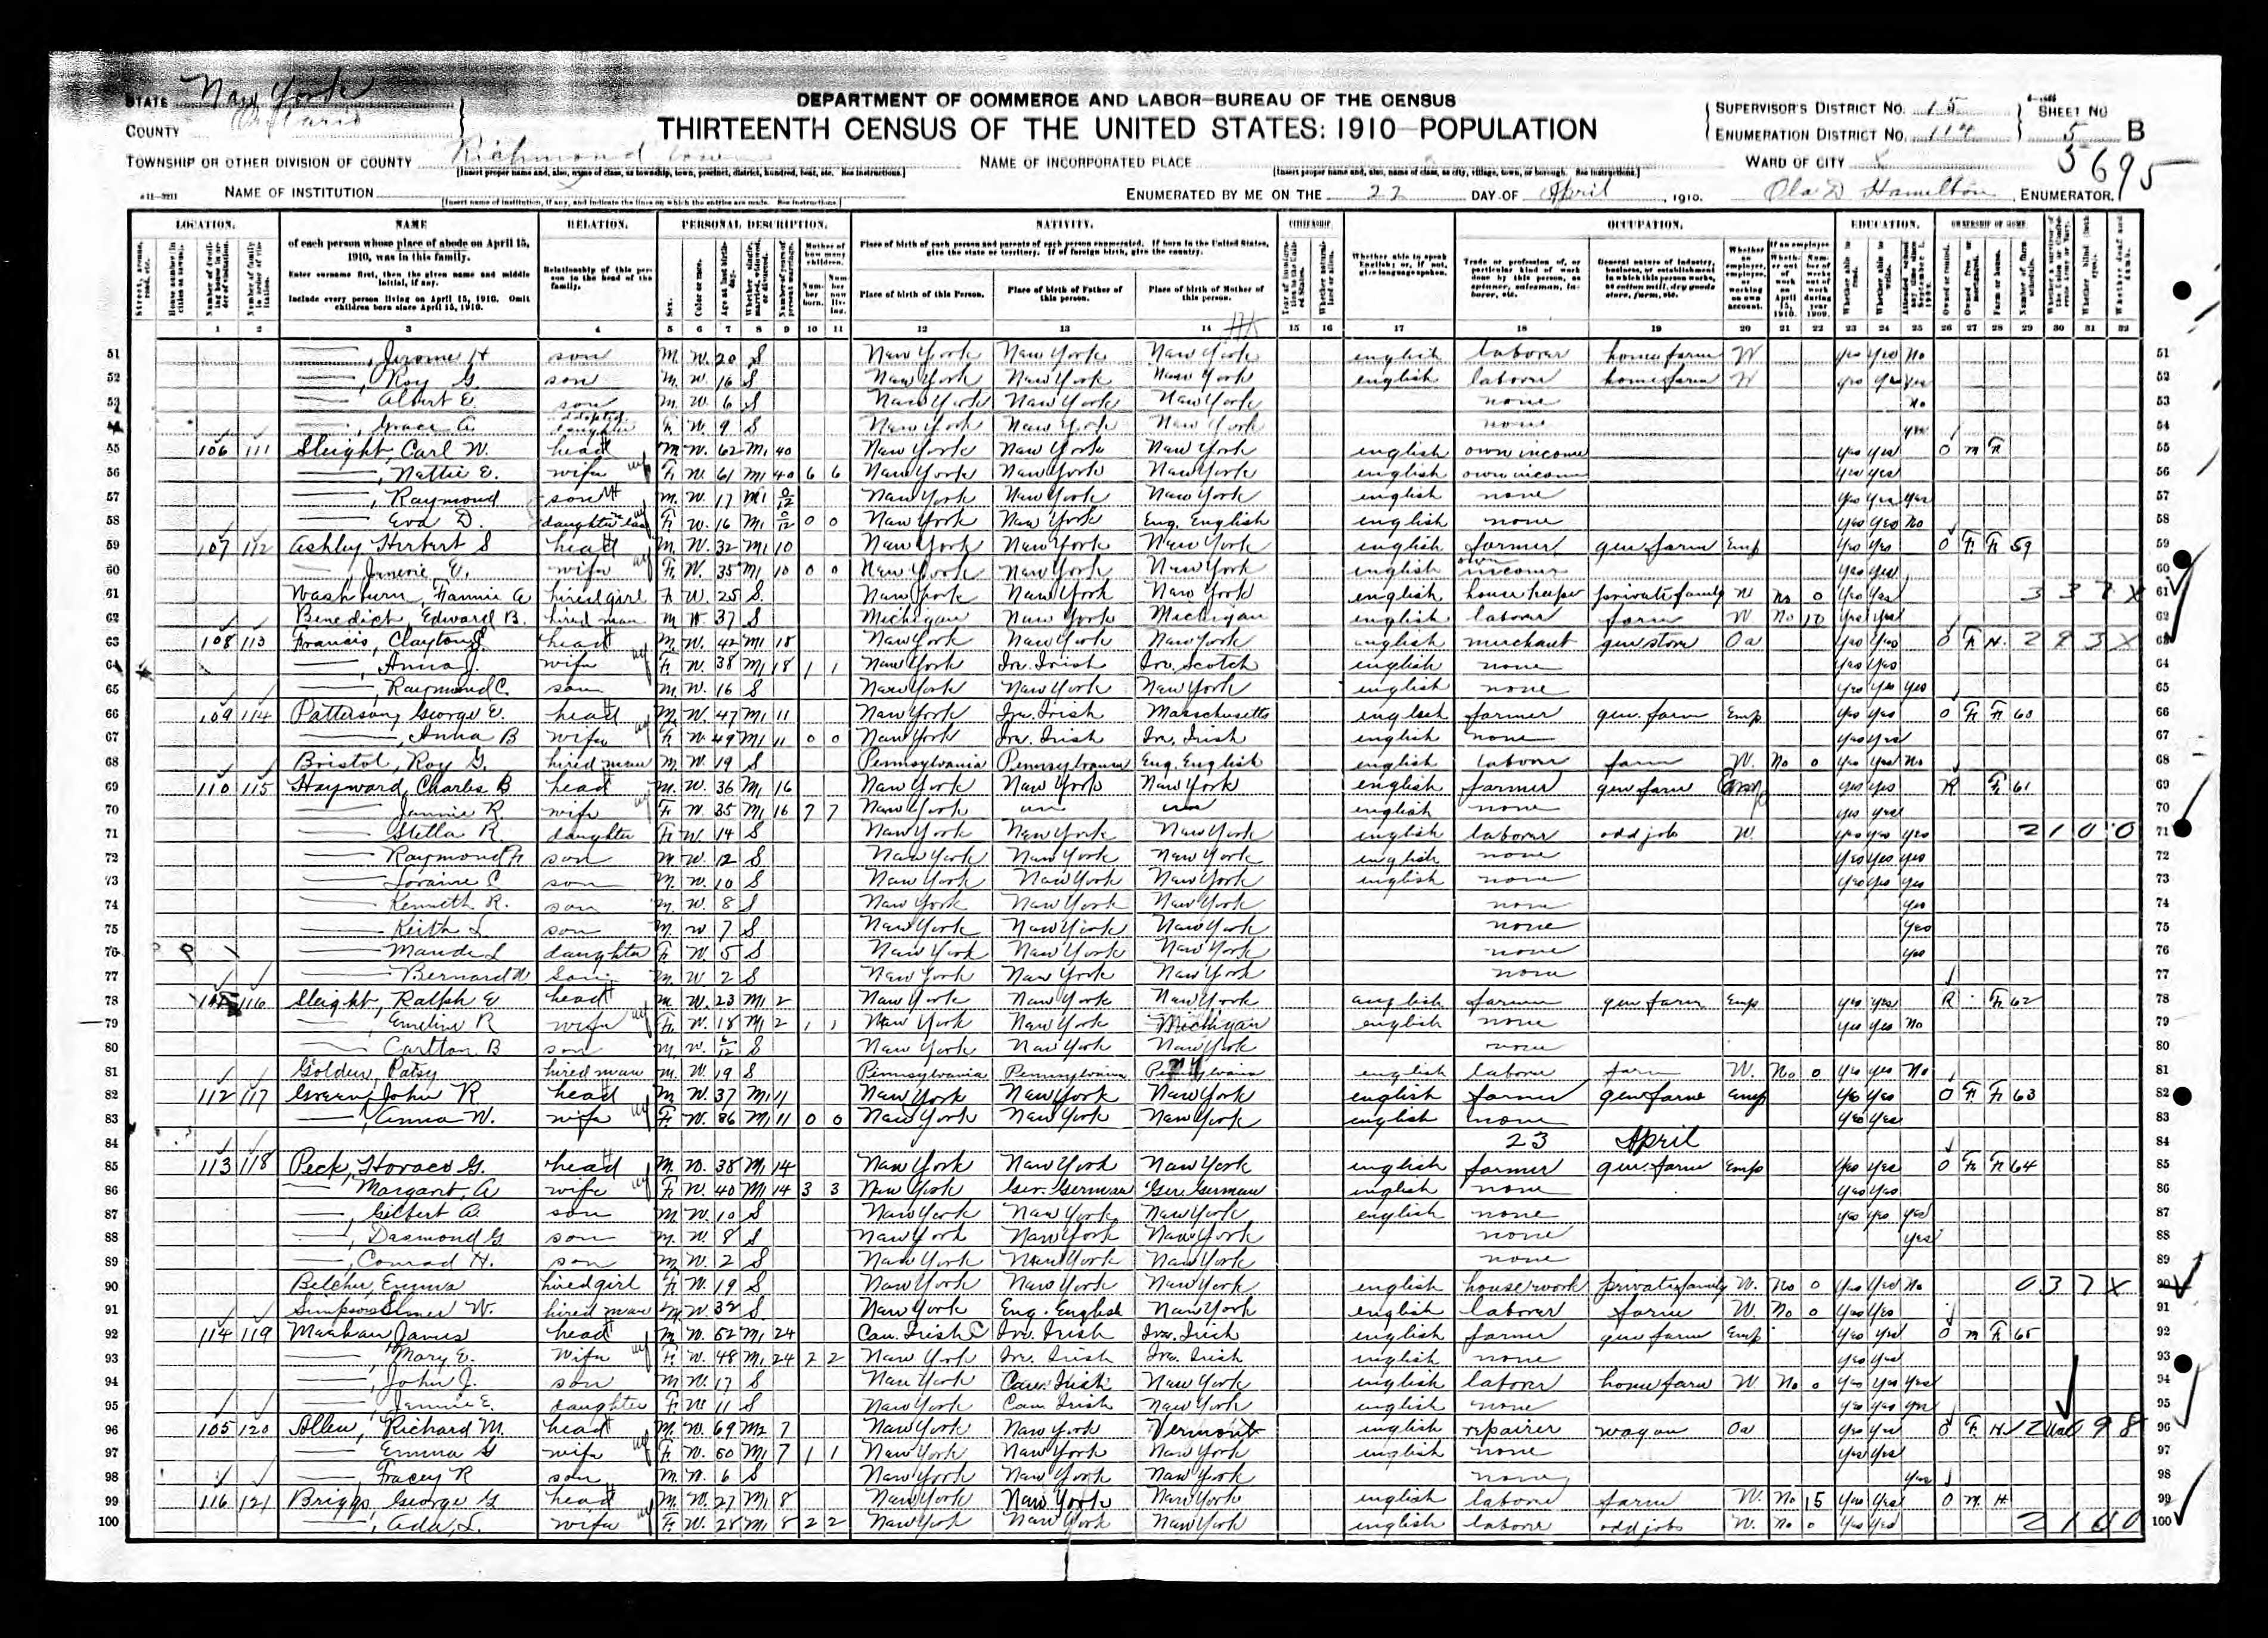 STATE New York
COUNTY Ontario
DEPARTMENT OF COMMERCE AND LABOR—BUREAU OF THE CENSUS
THIRTEENTH CENSUS OF THE UNITED STATES: 1910—POPULATION
SUPERVISOR'S DISTRICT NO. 15
ENUMERATION DISTRICT NO. 114
SHEET NO 5 B
5695
TOWNSHIP OR OTHER DIVISION OF COUNTY Richmond town
NAME OF INCORPORATED PLACE
WARD OF CITY
NAME OF INSTITUTION
ENUMERATED BY ME ON THE 22 DAY OF April, 1910. Ola D Hamilton, ENUMERATOR.
LOCATION. NAME RELATION. PERSONAL DESCRIPTION. NATIVITY. CITIZENSHIP. OCCUPATION. EDUCATION. OWNERSHIP OF HOME.
of each person whose place of abode on April 15, 1910, was in this family.
Enter surname first, then the given name and middle initial, if any.
Include every person living on April 15, 1910. Omit children born since April 15, 1910.
Relationship of this person to the head of the family.
Place of birth of each person and parents of each person enumerated. If born in the United States, give the state or territory. If of foreign birth, give the country.
Place of birth of this Person. Place of birth of Father of this person. Place of birth of Mother of this person.
1 2 3 4 5 6 7 8 9 10 11 12 13 14 15 16 17 18 19 20 21 22 23 24 25 26 27 28 29 30 31 32
51 —, Jerome H son M W 20 S New York New York New York english laborer home farm W yes yes no 51
52 —, Roy G. son M W 16 S New York New York New York english laborer home farm W yes yes yes 52
53 — Albert E. son M W 6 S New York New York New York none no 53
54 —, Grace A. adopted daughter F W 9 S New York New York New York none yes 54
55 106 111 Sleight, Carl W. head M W 62 M1 40 New York New York New York english own income yes yes O M 55
56 —, Nettie E. wife F W 61 M1 40 6 6 New York New York New York english own income yes yes 56
57 —, Raymond son M W 17 M1 0/12 New York New York New York english none yes yes yes 57
58 — Eva D. daughter in law F W 16 M1 0/12 0 0 New York New York Eng. English english none yes yes no 58
59 107 112 Ashley Herbert S head M W 32 M1 10 New York New York New York english farmer gen farm Emp yes yes O F F 59 59
60 wife F W 35 M1 10 0 0 New York New York New York english own income yes yes 60
61 Washburn, Fannie A hired girl F W 25 S New York New York New York english house keeper private family W no 0 yes yes 3 3 7 X 61
62 Benedict, Edward B. hired man M W 37 S Michigan New York Michigan english laborer farm W. No 10 yes yes 62
63 108 113 Francis, Clayton head M W 42 M1 18 New York New York New York english merchant gen store Oa yes yes O F H 2 8 3 X 63
64 —, Anna J. wife F W 38 M1 18 1 1 New York Ire. Irish Ire. Scotch english none yes yes 64
65 —, Raymond C. son M W 16 S New York New York New York english none yes yes yes 65
66 109 114 Patterson, George E. head M W 47 M1 11 New York Ire. Irish Massachusetts english farmer gen. farm Emp yes yes O F F 60 66
67 —, Anna B wife F W 49 M1 11 0 0 New York Ire. Irish Ire. Irish english none yes yes 67
68 Bristol, Roy G. hired man M W 19 S Pennsylvania Pennsylvania Eng. English english laborer farm W. No 0 yes yes no 68
69 110 115 Hayward, Charles B head M W 36 M1 16 New York New York New York english farmer gen farm Emp yes yes R F 61 69
70 — Jennie R wife F W 35 M1 16 7 7 New York un un english none yes yes 70
71 — Stella R daughter F W 14 S New York New York New York english laborer odd jobs W. yes yes yes 2 1 0 0 71
72 — Raymond F son M W 12 S New York New York New York english none yes yes yes 72
73 — Loraine C son M W 10 S New York New York New York english none yes yes yes 73
74 — Kenneth R. son M W 8 S New York New York New York none yes 74
75 — Keith L son M W 7 S New York New York New York none yes 75
76 — Maude L daughter F W 5 S New York New York New York none yes 76
77 — Bernard W son M W 2 S New York New York New York none 77
78 116 Sleight, Ralph E head M W 23 M1 2 New York New York New York english farmer gen farm Emp yes yes R F 62 78
79 —, Emeline R wife F W 18 M1 2 1 1 New York New York Michigan english none yes yes no 79
80 — Carlton B son M W 6/12 S New York New York New York none 80
81 Golden, Patsy hired man M W 19 S Pennsylvania Pennsylvania Pennsylvania english laborer farm W. No 0 yes yes no 81
82 112 117 Green, John R head M W 37 M1 11 New York New York New York english farmer gen farm Emp yes yes O F F 63 82
83 —, Anna W. wife F W 36 M1 11 0 0 New York New York New York english none yes yes 83
84 23 April 84
85 113 118 Peck, Horace G. head M W 38 M1 14 New York New York New York english farmer gen. farm Emp yes yes O F F 64 85
86 — Margaret A wife F W 40 M1 14 3 3 New York Ger. German Ger. German english none yes yes 86
87 —, Gilbert A. son M W 10 S New York New York New York english none yes yes yes 87
88 —, Desmond G son M W 8 S New York New York New York none yes 88
89 —, Conrad H. son M W 2 S New York New York New York none 89
90 Belcher, Emma hired girl F W 19 S New York New York New York english housework private family W. No 0 yes yes no 0 3 7 X 90
91 Simpson Elmer W. hired man M W 32 S New York Eng. English New York english laborer farm W. No 0 yes yes 91
92 114 119 Meehan James head M W 52 M1 24 Can. Irish Ire. Irish Ire. Irish english farmer gen farm Emp yes yes O M F 65 92
93 —, Mary E. wife F W 48 M1 24 2 2 New York Ire. Irish Ire. Irish english none yes yes 93
94 —, John J. son M W 17 S New York Can. Irish New York english laborer home farm W. No 0 yes yes yes 94
95 —, Jennie E. daughter F W 11 S New York Can Irish New York english none yes yes yes 95
96 105 120 Allen, Richard M. head M W 69 M2 7 New York New York Vermont english repairer wagon Oa yes yes O F H 96
97 — Emma G wife F W 50 M1 7 1 1 New York New York New York english none yes yes 97
98 —, Tracey R son M W 6 S New York New York New York none yes 98
99 116 121 Briggs, George G head M W 27 M1 8 New York New York New York english laborer farm W. No 15 yes yes O M H 99
100 —, Ada L. wife F W 28 M1 8 2 2 New York New York New York english laborer odd jobs W. No 0 yes yes 100